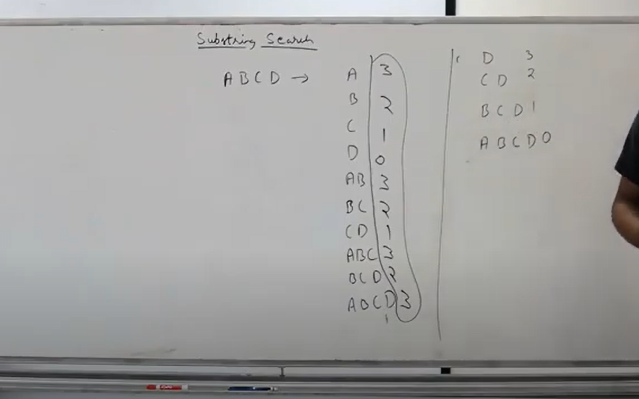 Substring Search
ABCD →
A 3
B 2
C 1
D 0
AB 3
BC 2
CD 1
ABC 3
BCD 2
ABCD 3
1
D 3
CD 2
BCD 1
ABCD 0